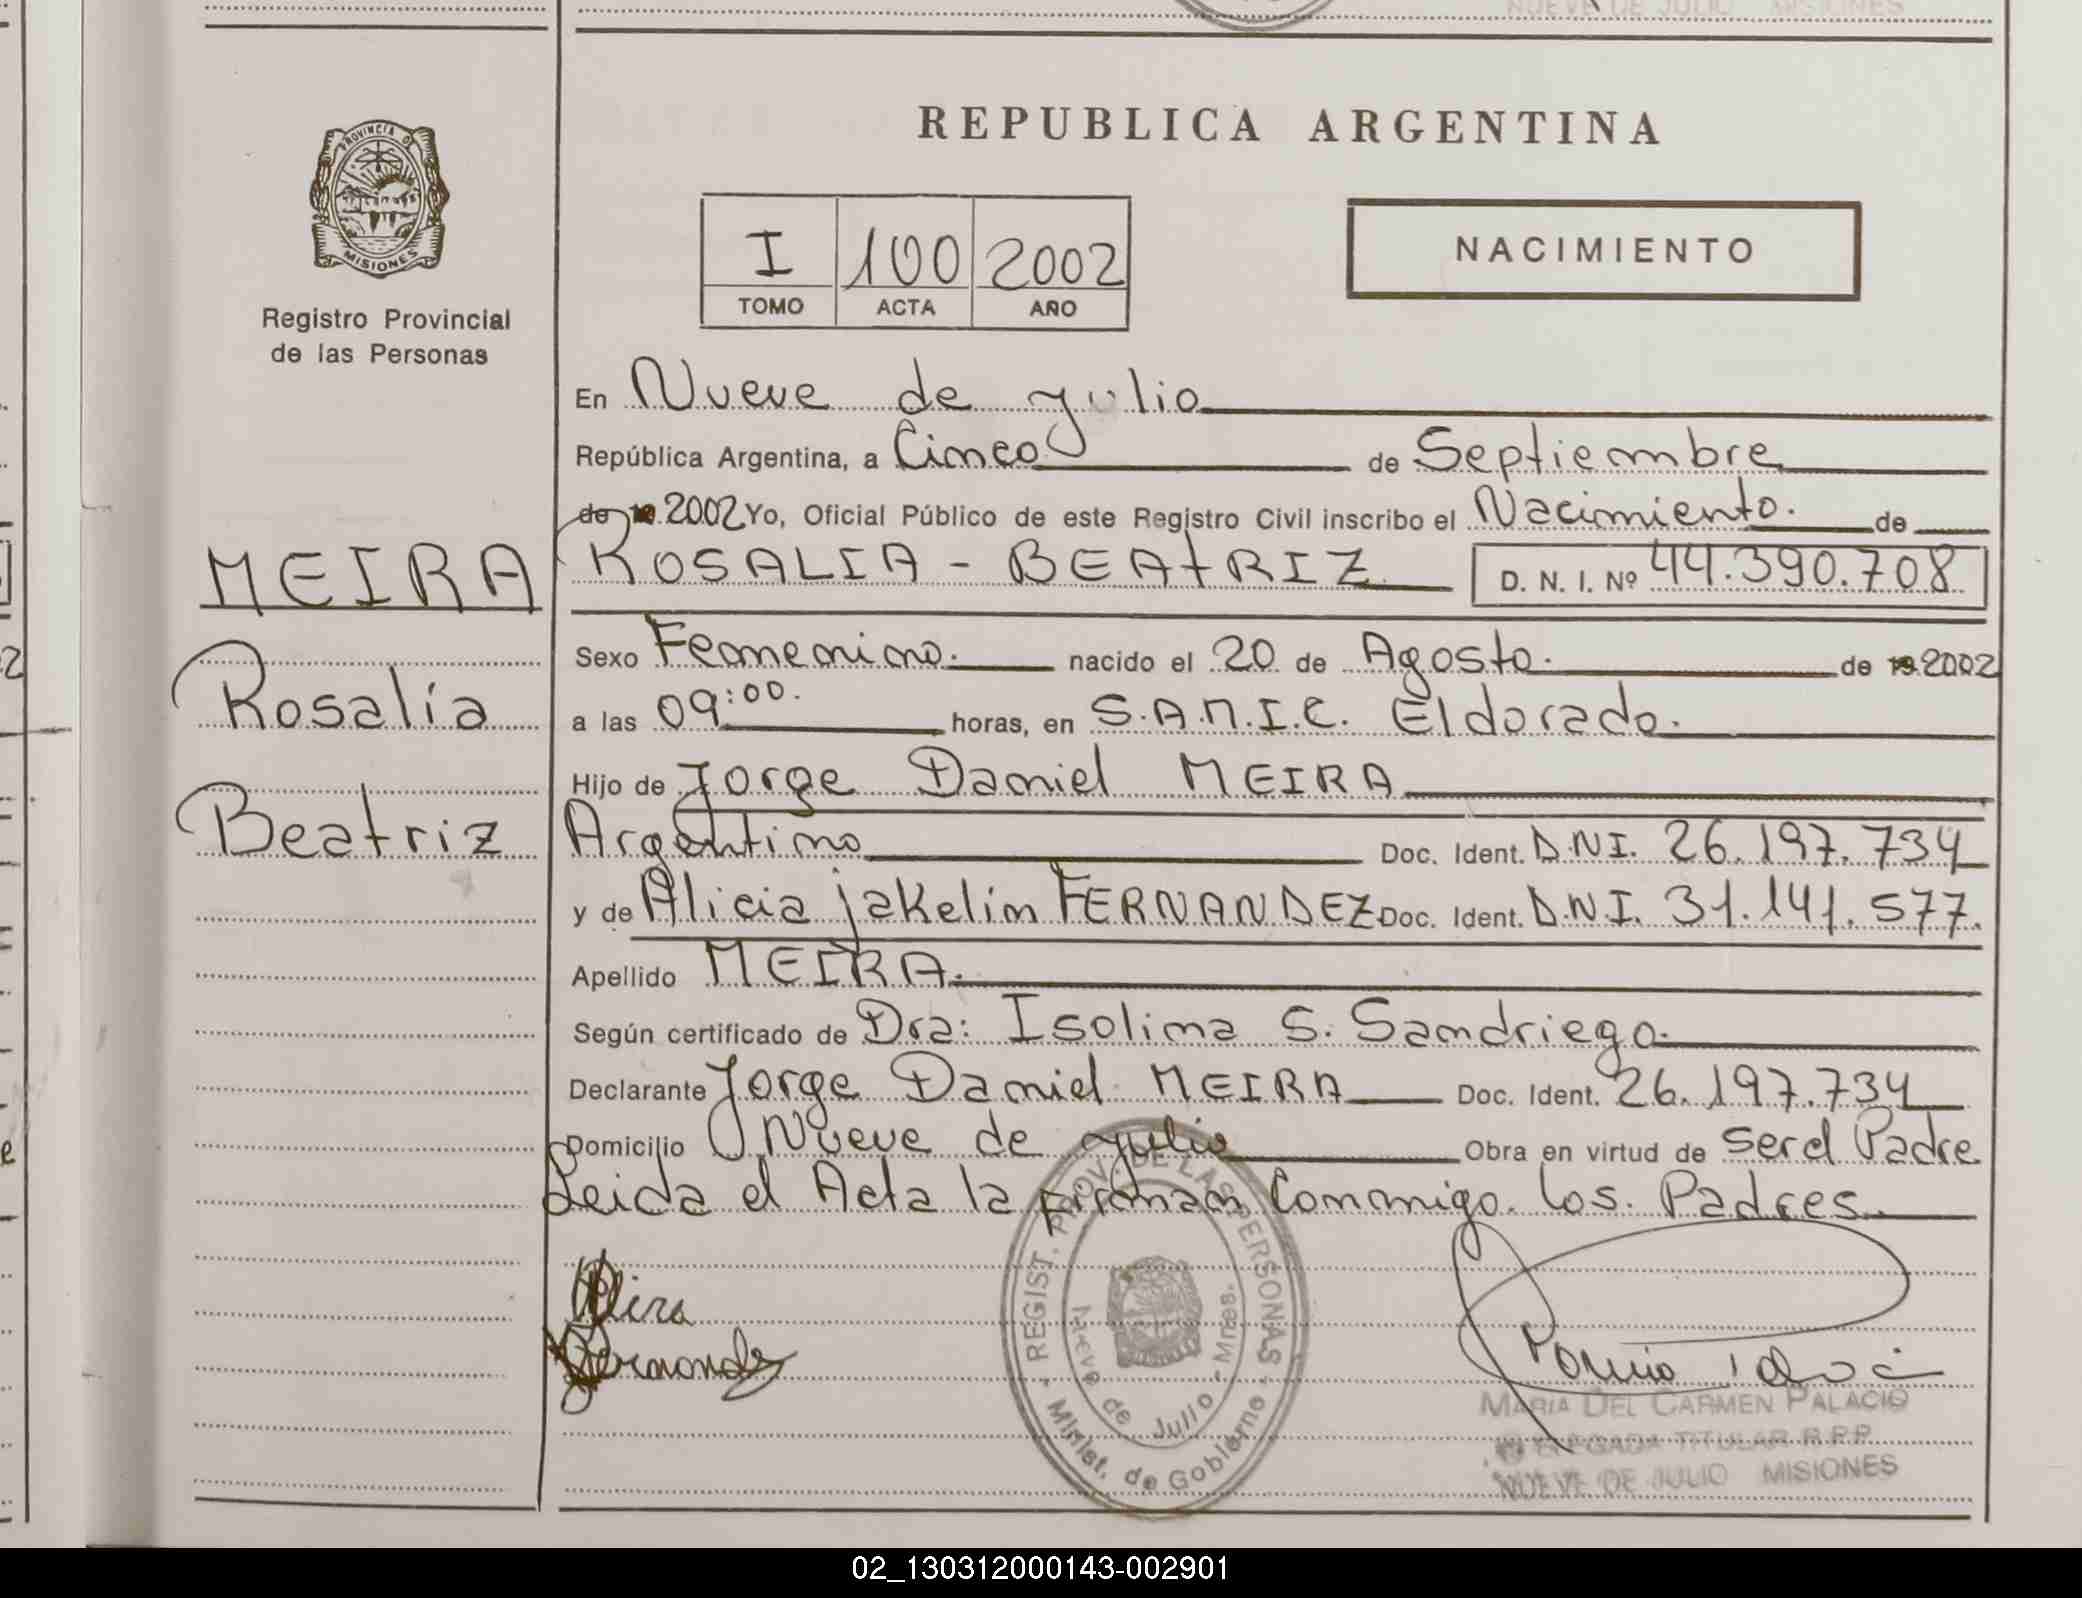 NUEVE DE JULIO MISIONES
REPUBLICA ARGENTINA
PROVINCIA DE
MISIONES
Registro Provincial
de las Personas
I 100 2002
TOMO ACTA AÑO
NACIMIENTO
En Nueve de julio
República Argentina, a Cinco de Septiembre
de 19 2002 Yo, Oficial Público de este Registro Civil inscribo el Nacimiento. de
MEIRA
ROSALIA - BEATRIZ D. N. I. Nº 44.390.708
Sexo Femenino. nacido el 20 de Agosto. de 19 2002
Rosalía
a las 09:00. horas, en S.A.M.I.C. Eldorado.
Hijo de Jorge Daniel MEIRA
Beatriz
Argentino Doc. Ident. D.N.I. 26.197.734
y de Alicia jakelin FERNANDEZ Doc. Ident. D.N.I. 31.141.577.
Apellido MEIRA.
Según certificado de Dra: Isolina S. Sandriego.
Declarante Jorge Daniel MEIRA Doc. Ident. 26.197.734
Domicilio Nueve de julio Obra en virtud de ser el Padre
Leida el Acta la firman Conmigo los Padres.
Meira
Fernandez
REGIST. PROV. DE LAS PERSONAS
Minist. de Gobierno
Nueve de Julio - Mnes.
MARIA DEL CARMEN PALACIO
DELEGADA TITULAR R.P.P.
NUEVE DE JULIO MISIONES
02_130312000143-002901